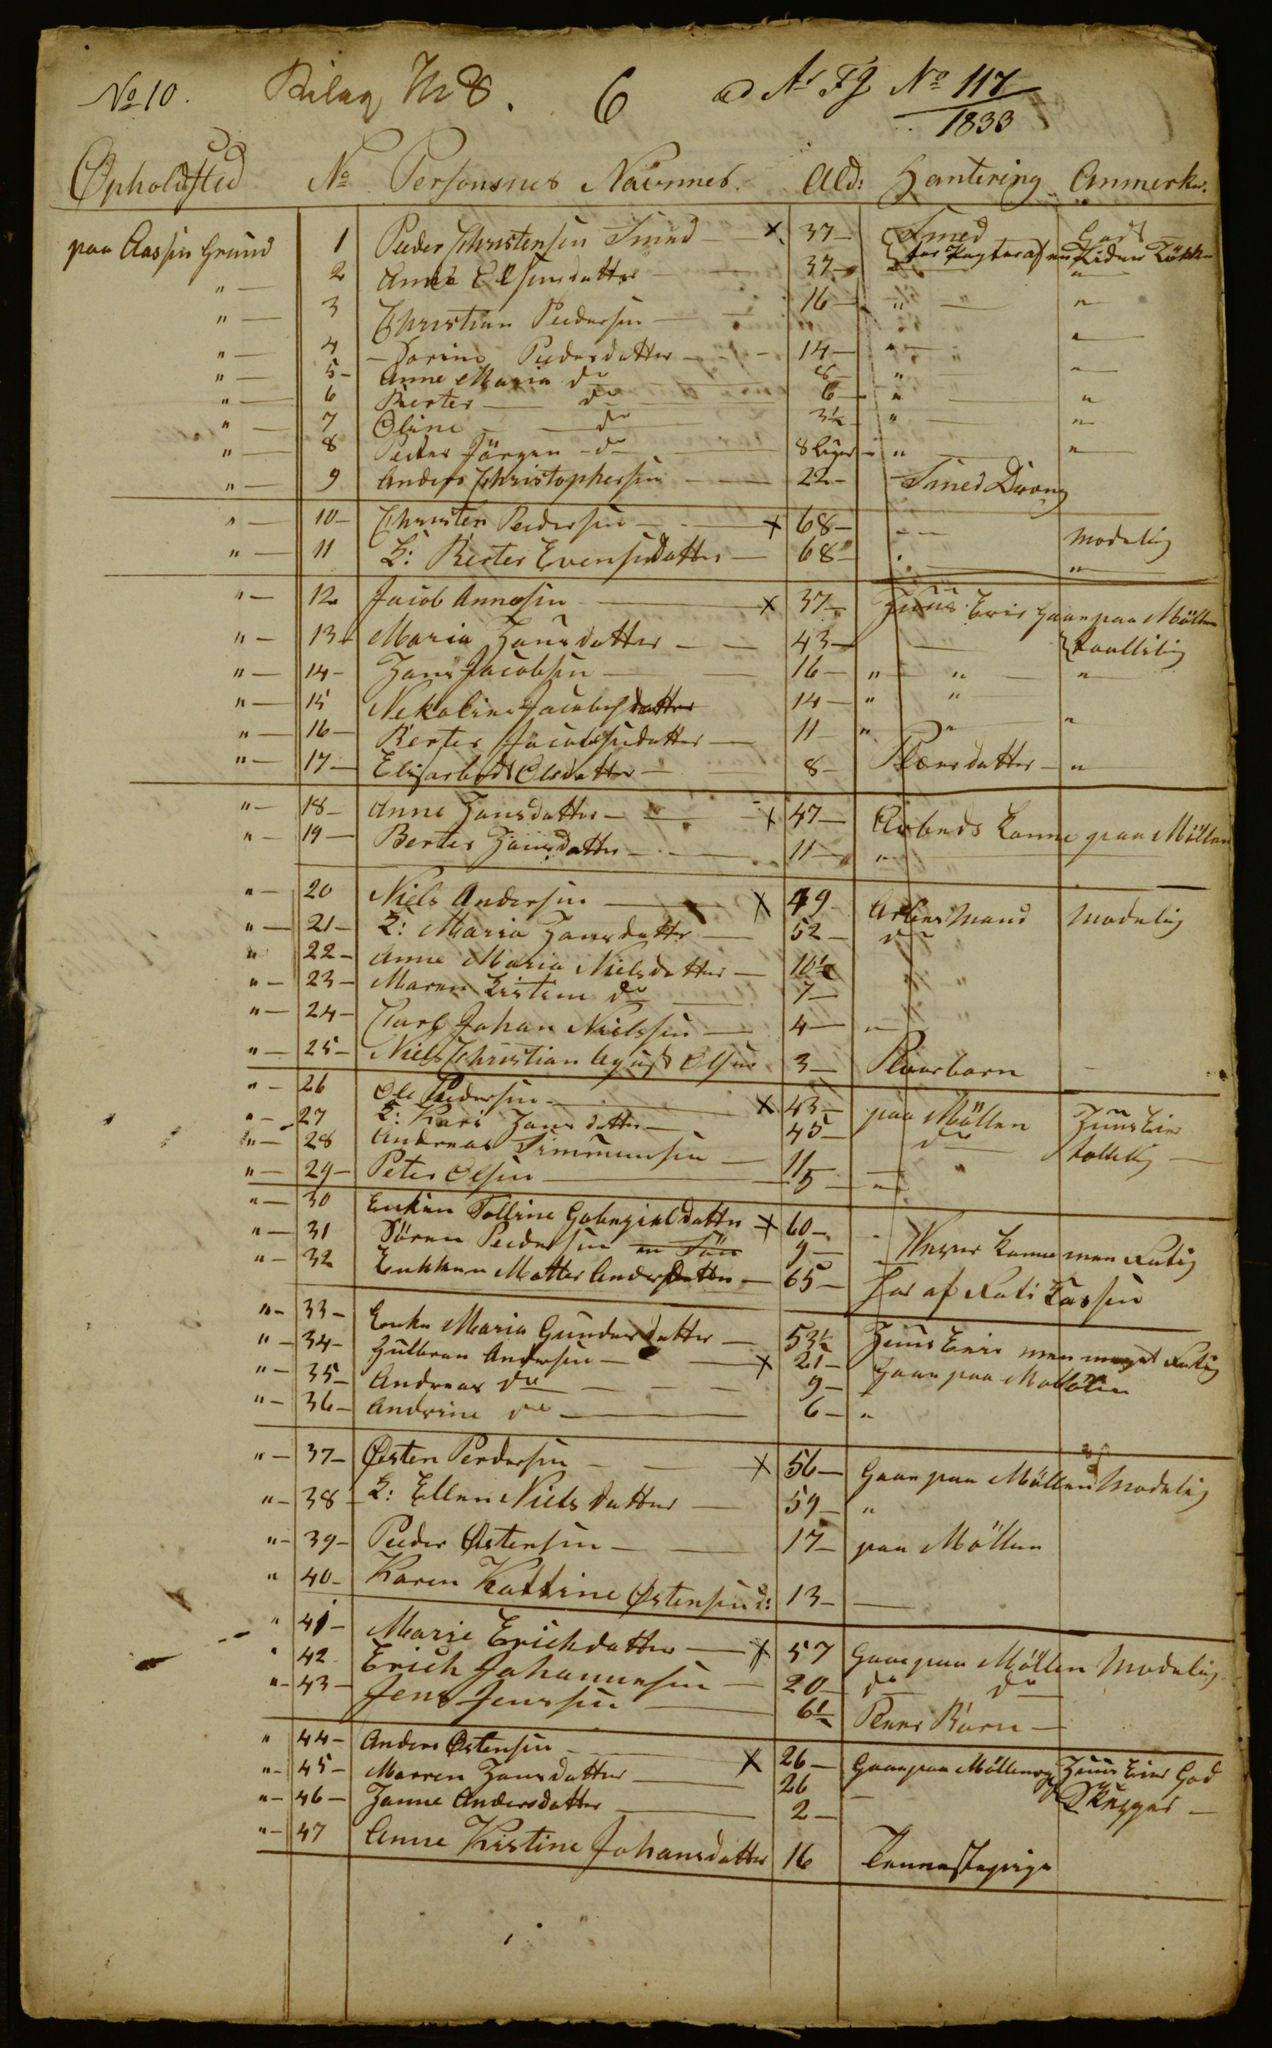 No 10. Bilag No 8. 6 ad Ar Fg No 117
1833
Opholdsted No Personsnes Navnnes. Ald: Hantering Anmerkn:
paa Aassen Grund 1 Peder Christensen Smed — x 37 — Smed Godt
" — 2 Anne Elsensdatter — 37 — "
" — 3 Christian Pedersen — 16 — " — "
" — 4 — Dorine Pedersdatter — 14 — " — "
" — 5 — Anne Maria do — 8 — " — "
" — 6 Berter — do — 6 — " — "
" — 7 Oline — do — 3½ — " — "
" — 8 Peder Jörgen — do — 8 Uger — " — "
" — 9 Anders Christophersen — 22 — Smed Dreng
" — 10 — Christen Pedersen — x 68 — — Modelig
" — 11 K: Berter Evensdatter — 68 " — "
" — 12 Jacob Annesen — x 37 — Huus Eier Gaar paa Möllen
" — 13 — Maria Hansdatter — 43 — — taallelig
" — 14 — Hans Jacobsen — 16 — " " — "
" — 15 Nekoline Jacobsdatter 14 — " "
" — 16 — Berter Jacobsdatter — 11 — " " — "
" — 17 — Elisarbeth Olsdatter — 8 — Pleiersdatter — "
" — 18 — Anne Hansdatter — x 47 — Arbeds Konne paa Möllen
" — 19 — Berter Hansdatter — 11 — "
" — 20 Niels Andersen — x 49 Arbeis Mand Modelig
" — 21 — K: Maria Hansdatter — 52 — do
" 22 — Anne Maria Nielsdatter — 10½
" — 23 — Maren Kistine do — 7 —
" — 24 — Carl Johan Nielssen — 4 — "
" — 25 — Niels Christian Agust Olsen 3 — Pleiebarn —
" — 26 Ole Pedersen — x 43 — paa Möllen Huus Eier
" — 27 K: Kari Hansdatter — 45 — do tollelig —
" — 28 Andreas Simmensen — 11 —
" — 29 — Peter Olsen — 5 — "
" — 30 Enken Talline Gabrgieldatter x 60 —
" — 31 Sören Pedersen en Sön 9 — Væver Konne men Fatig
" — 32 Enkken Matter Andersdatter — 65 — Har af Fati Kassen
" — 33 — Enke Maria Gundersdatter — 53½ Huus Eier men meget Fatig
" — 34 — Gulbran Andersen — x 21 — Gaar paa Möllen
" — 35 — Andreas do — 9 — "
" — 36 — Andrine do — 6 — "
" — 37 — Østen Perdersen — x 56 — Gaar paa Möllen Modelig
" — 38 — K: Ellen Nielsdatter — 59 — "
" — 39 — Peder Østensen — 17 — paa Möllen
" 40 — Karen Kattrine Østensend: 13 — —
" 41 — Marie Erichdatter — x 57 Gaar paa Möllen Modelig
" 42 Erich Johannesen — 20 — do do
" — 43 — Jens Jenssen — 6½ Pleier Barn —
" 44 — Anders Østensen — x 26 — Gaar paa Möllen og Huus Eier God
" — 45 — Marren Hansdatter — 26 —
" — 46 — Hanne Andersdatter — 2 —
" — 47 Anne Kistine Johansdatter 16